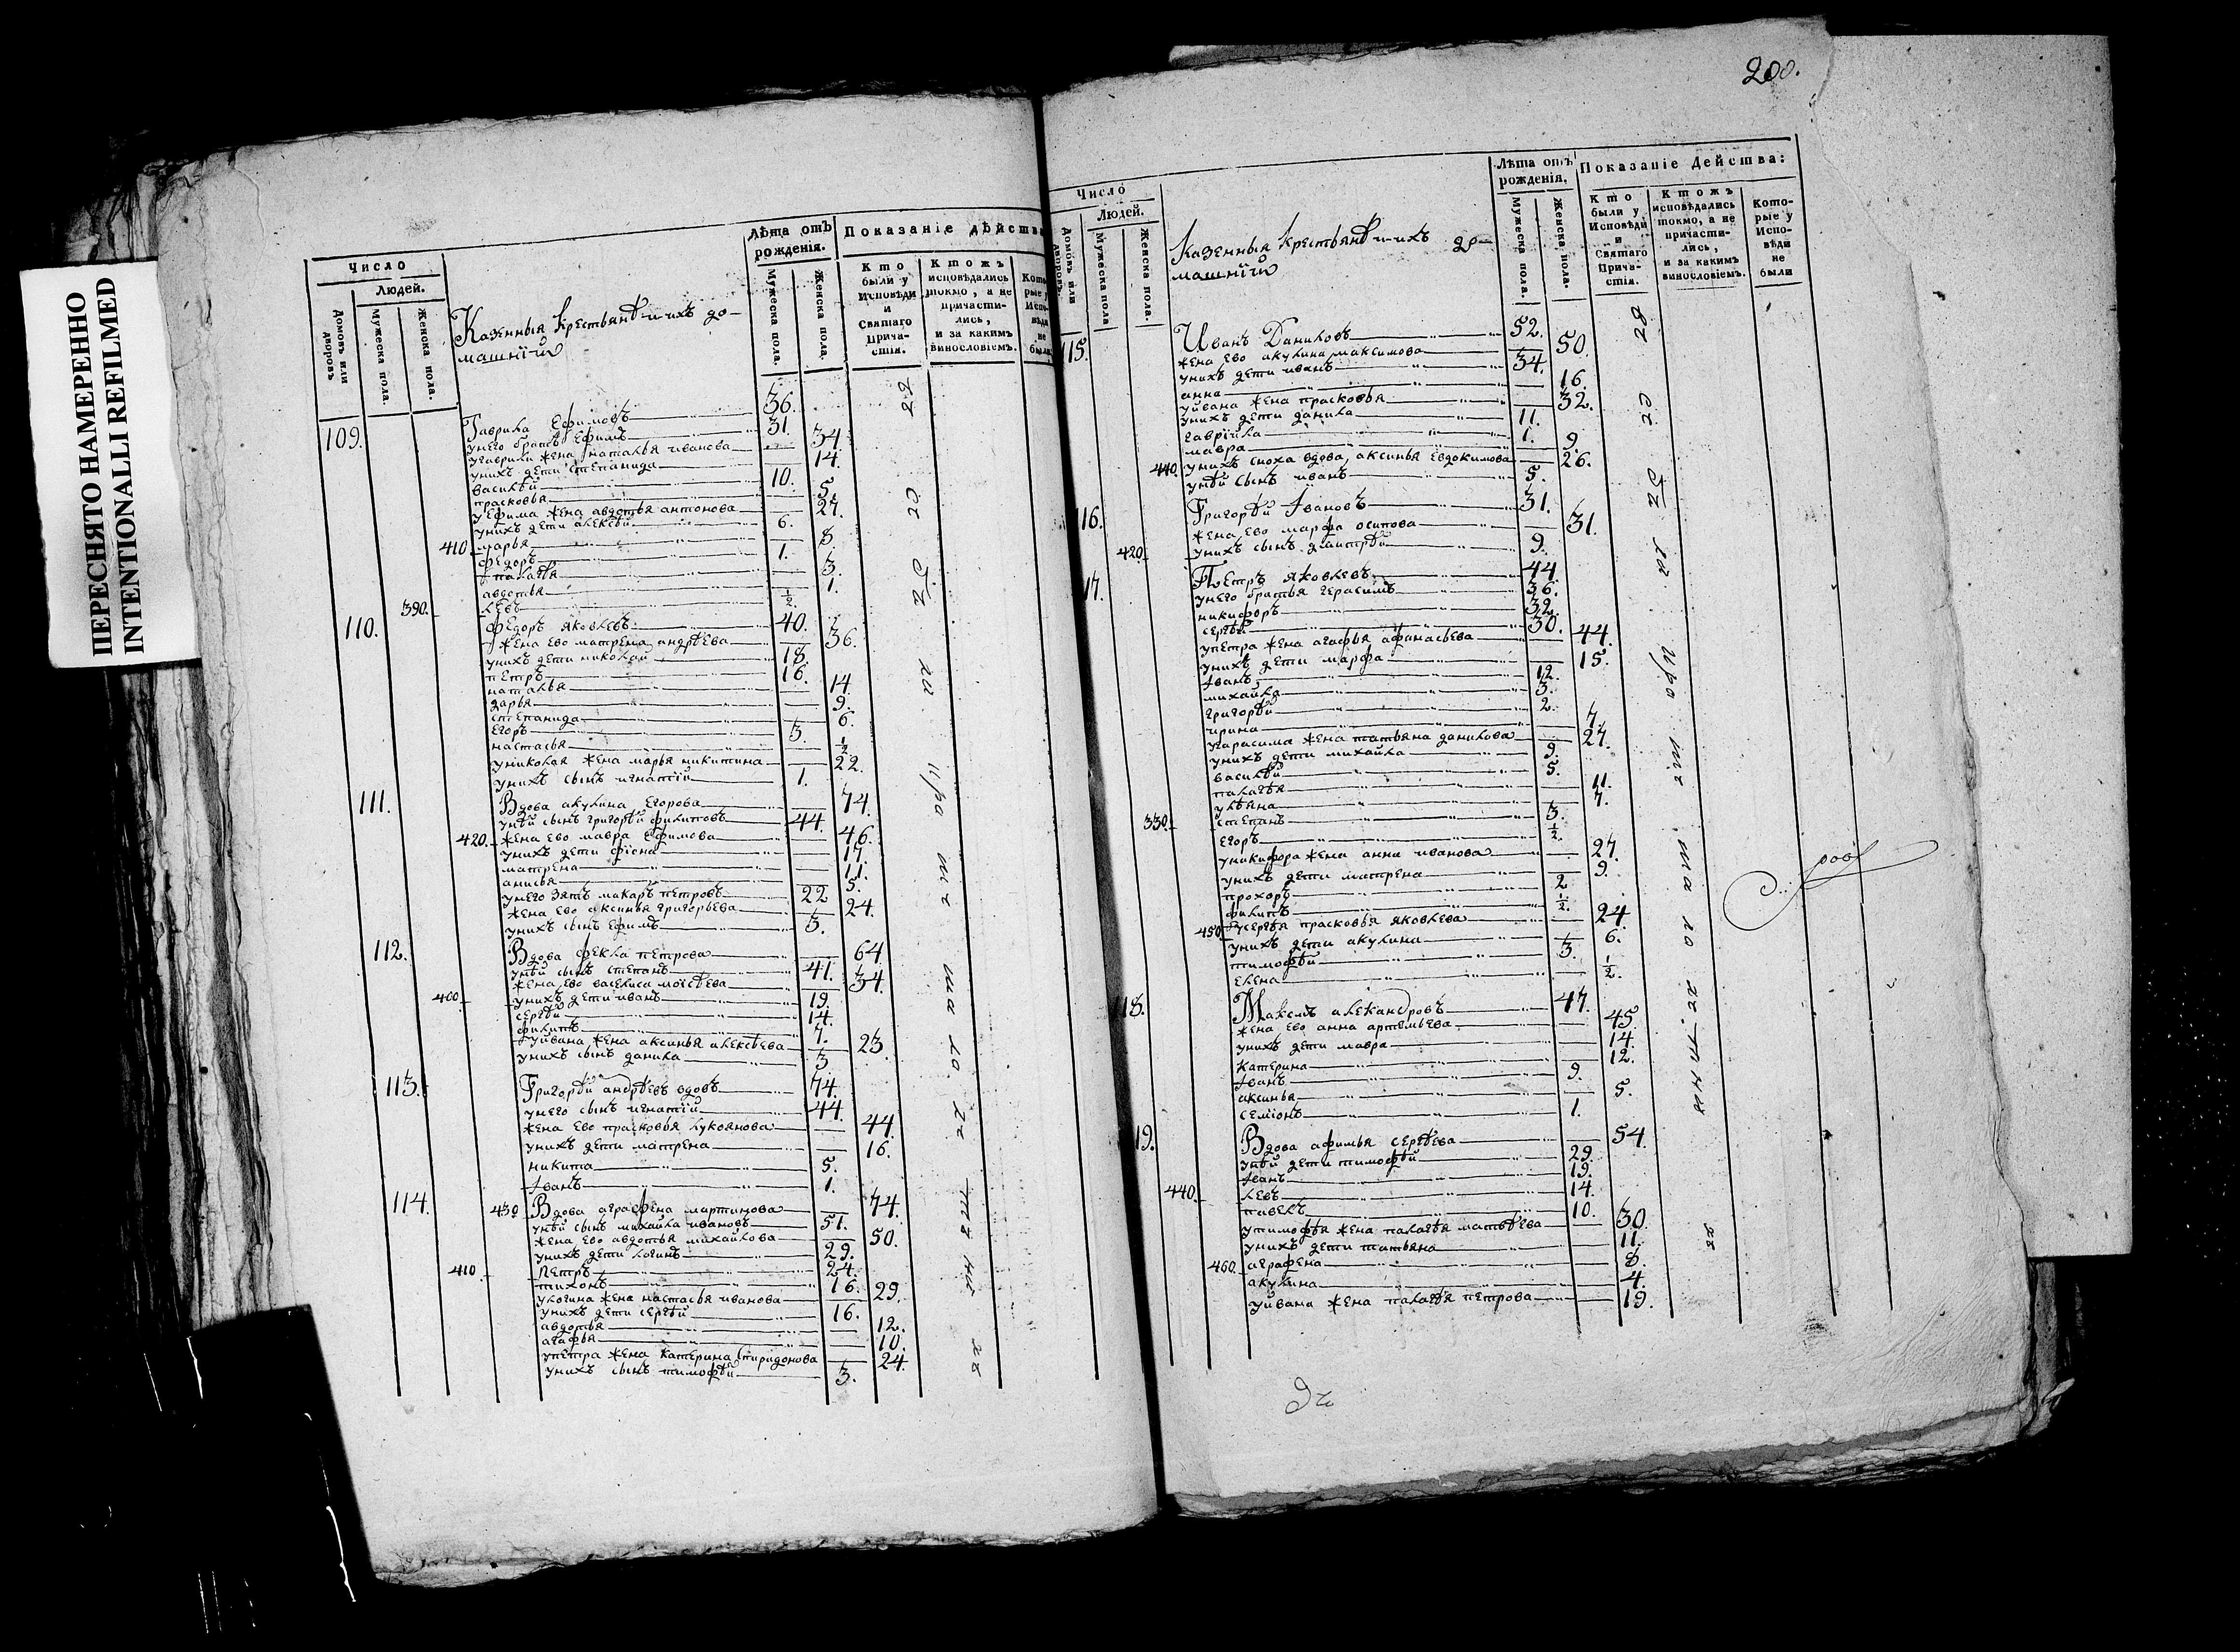 ПЕРЕСНЯТО НАМЕРЕННО
INTENTIONALLI REFILMED
Число
Людей.
Домовъ или дворовъ
Мужеска пола.
Женска пола.
Казенныя крестьянѣ и ихъ до-
машнїй
Лѣта отъ рожденія.
Мужеска пола.
Женска пола.
Показаніе дѣйства
Кто были у Исповѣди и Святаго Прича-стія.
Ктожъ исповѣдались токмо, а не причасти-лись, и за какимъ винословіемъ.
109. Гаврила Ефимовъ 36.
унего братъ Ефимъ 31.
угаврилы жена наталья иванова 34.
унихъ дети степанида 14.
василѣй 10.
прасковья 5.
уефима жена авдотья антонова 27.
унихъ дети алексѣй 6.
410 марья 8.
федоръ 1.
палагѣя 3.
авдотья 1.
390. левъ ½.
110. Федоръ яковлевъ 40.
жена ево матрена андрѣева 36.
унихъ дети николай 18.
петръ 16.
наталья 14.
дарья 9.
степанида 6.
егоръ 3.
настасья ½
униколая жена марья никитина 22.
унихъ сынъ игнатїй 1.
111. Вдова акулина Егорова 74.
уней сынъ григорѣй филиповъ 44.
420. жена ево мавра Ефимова 46.
унихъ дети фїона 17.
матрена 11.
анисья 5.
унего зять макаръ петровъ 22
жена ево аксинья григорьева 24.
унихъ сынъ Ефимъ 3.
112. Вдова фекла петрова 64
уней сынъ степанъ 41.
жена ево василиса моїсѣева 34.
400. унихъ дети иванъ 19.
сергѣй 14.
филипъ 7.
уйвана жена аксинья алексѣева 23.
унихъ сынъ данила 3
113. Григорѣй андрѣевъ вдовъ 74.
унего сынъ игнатїй 44.
жена ево прасковья лукоянова 44.
унихъ дети матрена 16.
никита 5.
Іванъ 1.
114. 430 Вдова аграфена мартинова 74.
уней сынъ михайла ивановъ 51.
жена ево авдотья михайлова 50.
унихъ дети логинъ 29.
410. Петръ 24.
тихонъ 16.
улогина жена настасья иванова 29.
унихъ дети сергѣй 16.
авдотья 12.
агафья 10.
упетра жена катерина спиридонова 24.
унихъ сынъ тимофѣй 3.
200.
Число
Людей.
Домовъ или дворовъ.
Мужеска пола
Женска пола.
Казенныя крестьянѣ и ихъ до-
машнїй
Лѣта отъ рожденія.
Мужеска пола.
Женска пола.
Показаніе Дейсшва:
Кто были у Исповѣди и Святаго Прича-стія.
Ктожъ исповѣдались токмо, а не причасти-лись, и за какимъ винословіемъ.
Кото-рые у Испо-вѣди не были
115. Иванъ Даниловъ 52.
жена ево акулина максимова 50.
унихъ дети иванъ 34.
анна 16.
уйвана жена прасковья 32.
унихъ дети данила 11.
гаврїйла 1.
мавра 9.
440. унихъ сноха вдова, аксинья Евдокимова 26.
уней сынъ иванъ 5.
116. Григорѣй Івановъ 31.
жена ево марфа осипова 31.
420. унихъ сынъ дмитрѣй 9.
17. Петръ яковлевъ 44
унего братья герасимъ 36.
никифоръ 32.
сергѣй 30.
упетра жена агафья афанасьева 44.
унихъ дети марфа 15.
Іванъ 12.
михайла 3.
григорѣй 2.
ирина 7.
угарасима жена татьяна данилова 27.
унихъ дети михайла 9.
василѣй 5.
палагѣя 11.
ульяна 7.
330. степанъ 3.
егоръ ½.
уникифора жена анна иванова 27.
унихъ дети матрена 9.
прохоръ 2
филипъ ½.
450 усергѣя прасковья яковлева 24
унихъ дети акулина 6.
тимофѣй 3.
елена ½.
118. Максимъ алекандровъ 47.
жена ево анна артемьева 45.
унихъ дети мавра 14.
катерина 12.
Іванъ 9.
аксинья 5.
семїонъ 1.
19. Вдова афимья сергѣева 54.
уней дети тимофѣй 29.
Іванъ 19.
440. левъ 14.
павелъ 10.
утимофѣя жена палагѣя матвѣева 30.
унихъ дети татьяна 11.
460. аграфена 8.
акулина 4.
уйвана жена палагѣя петрова 19.